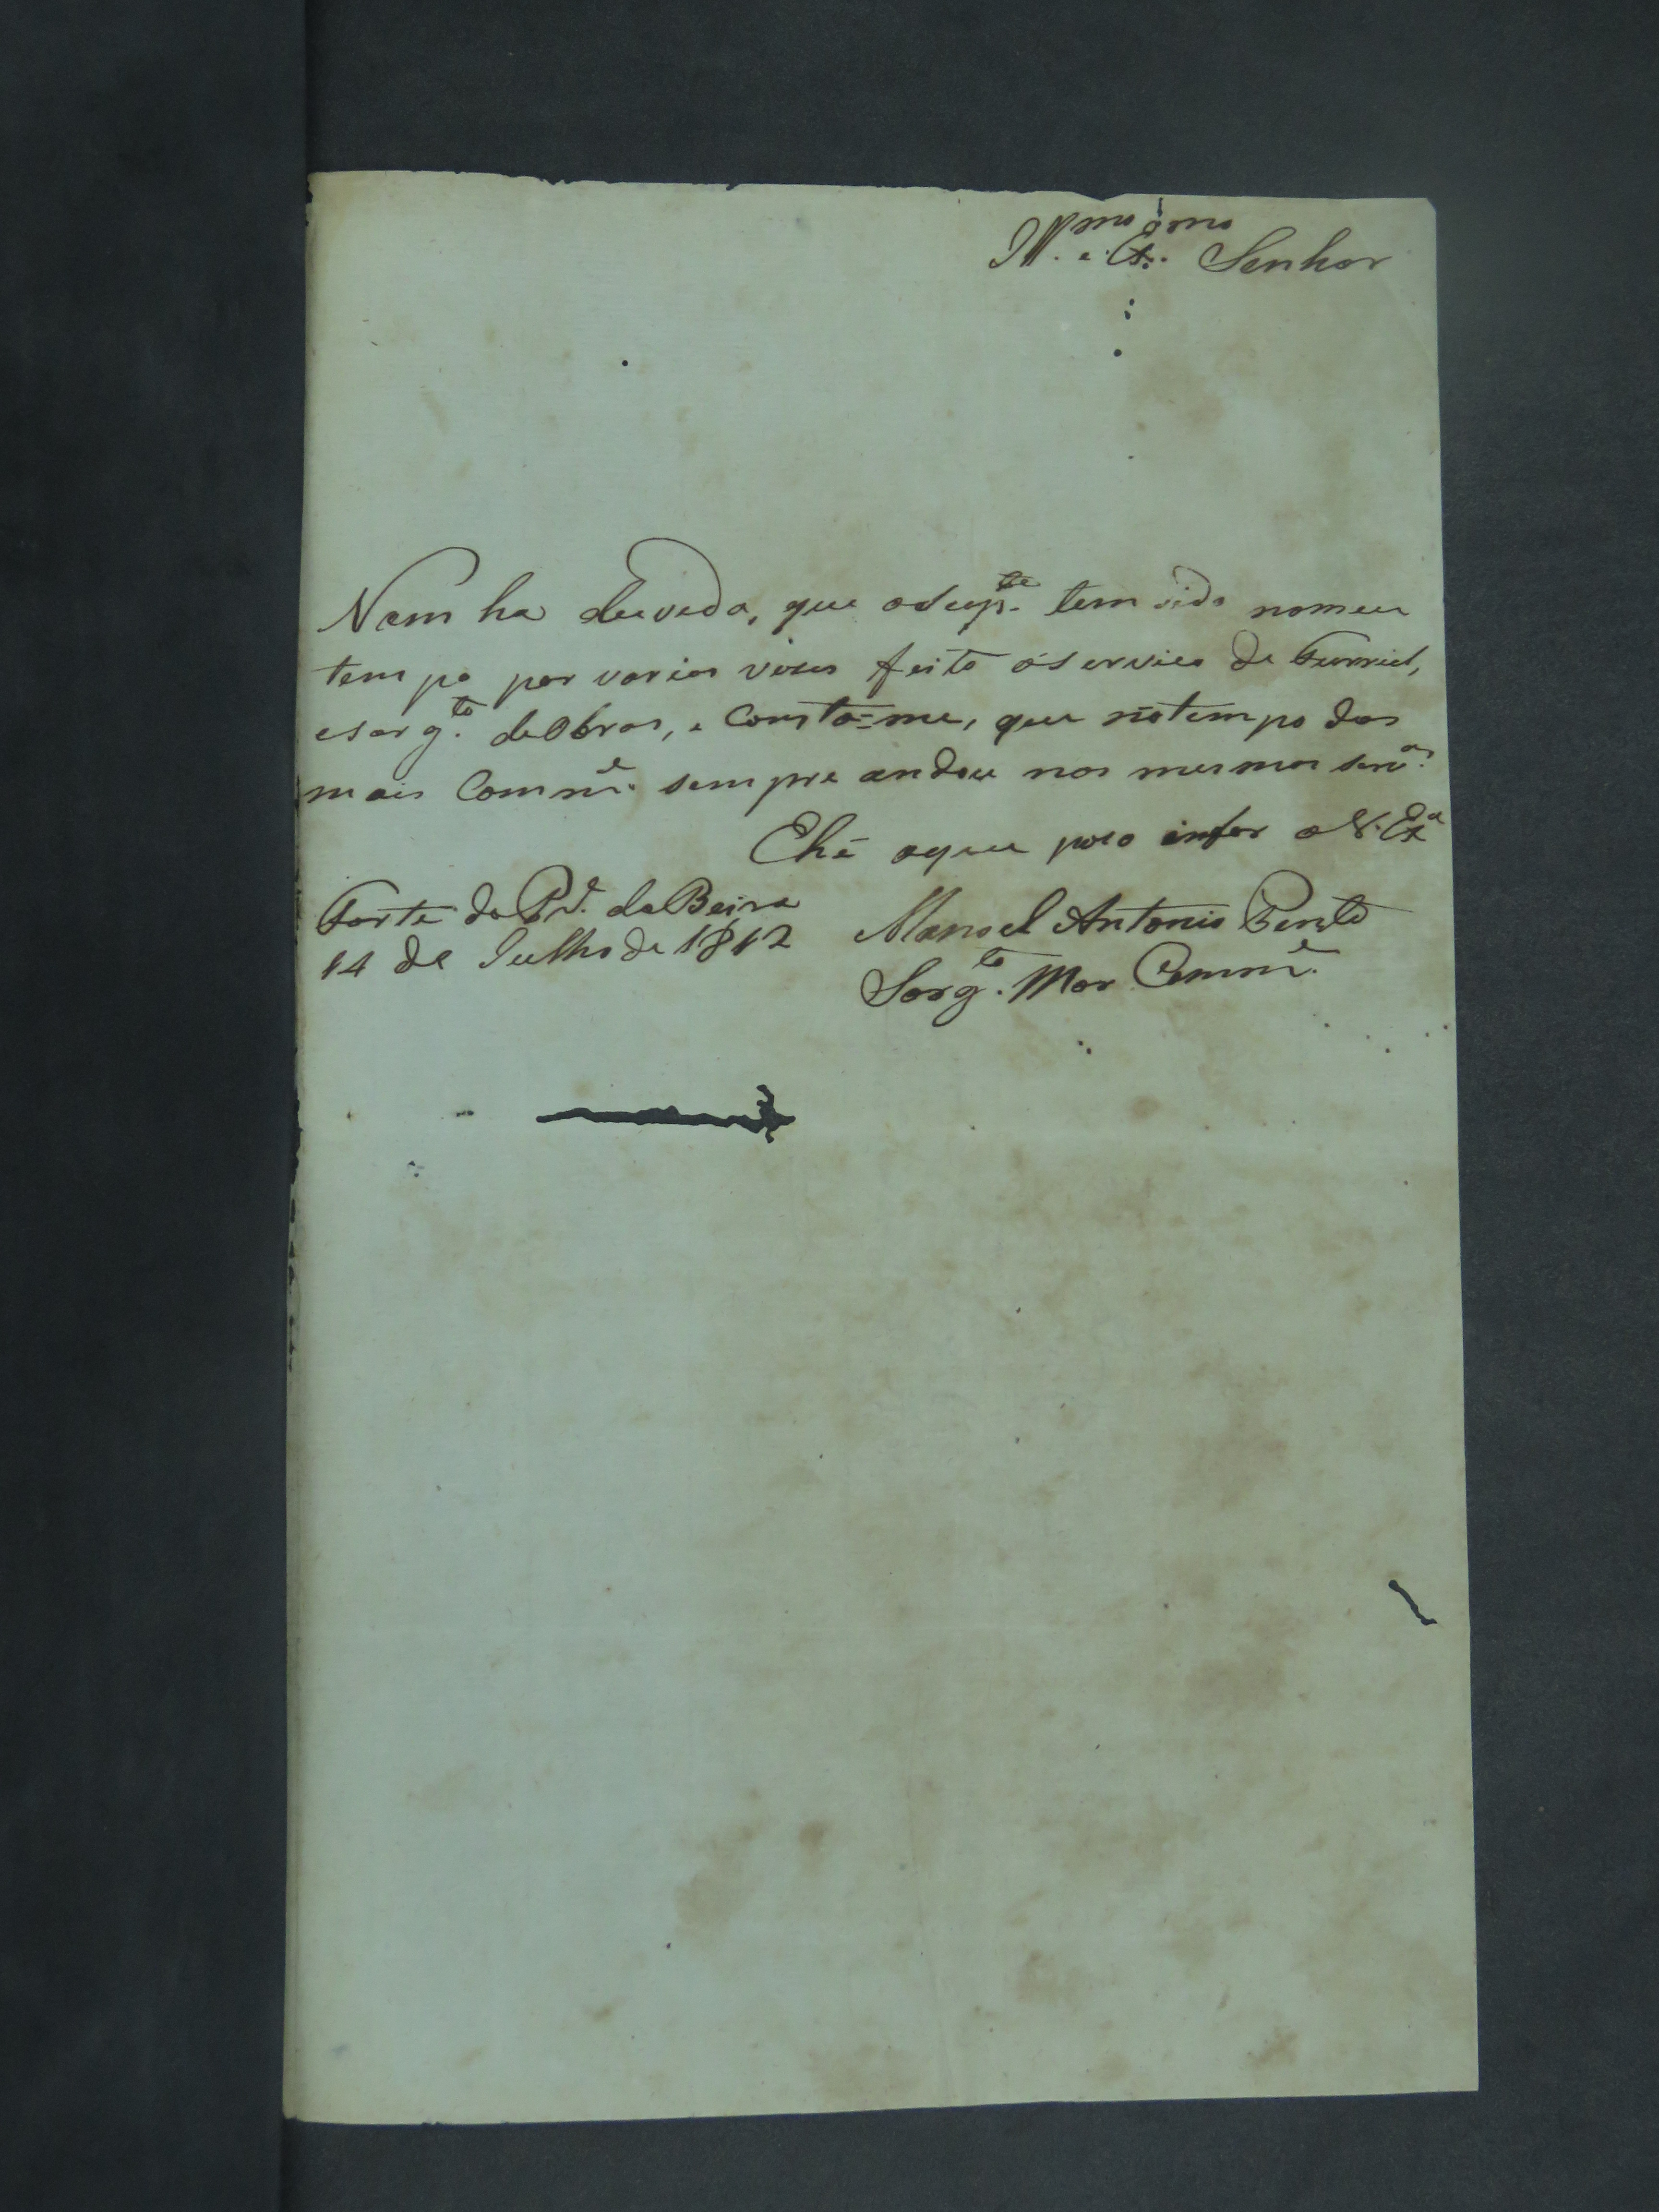 Ill.mo e Ex.mo Senhor
Nam ha duvida, que o Sup.te tem sido nomeu
tempo por varias vezes feito o servico de Furriel,
e Sarg.to de Obras, e Consta=me, que no tempo dos
mais Comm.e sempre andou nos mesmos serv.os
Ehé o que poso infor a V. Ex.a
Forte do P.e da Beira
14 de Julho de 1812
Manoel Antonio
Sarg.to Mor Comm.e